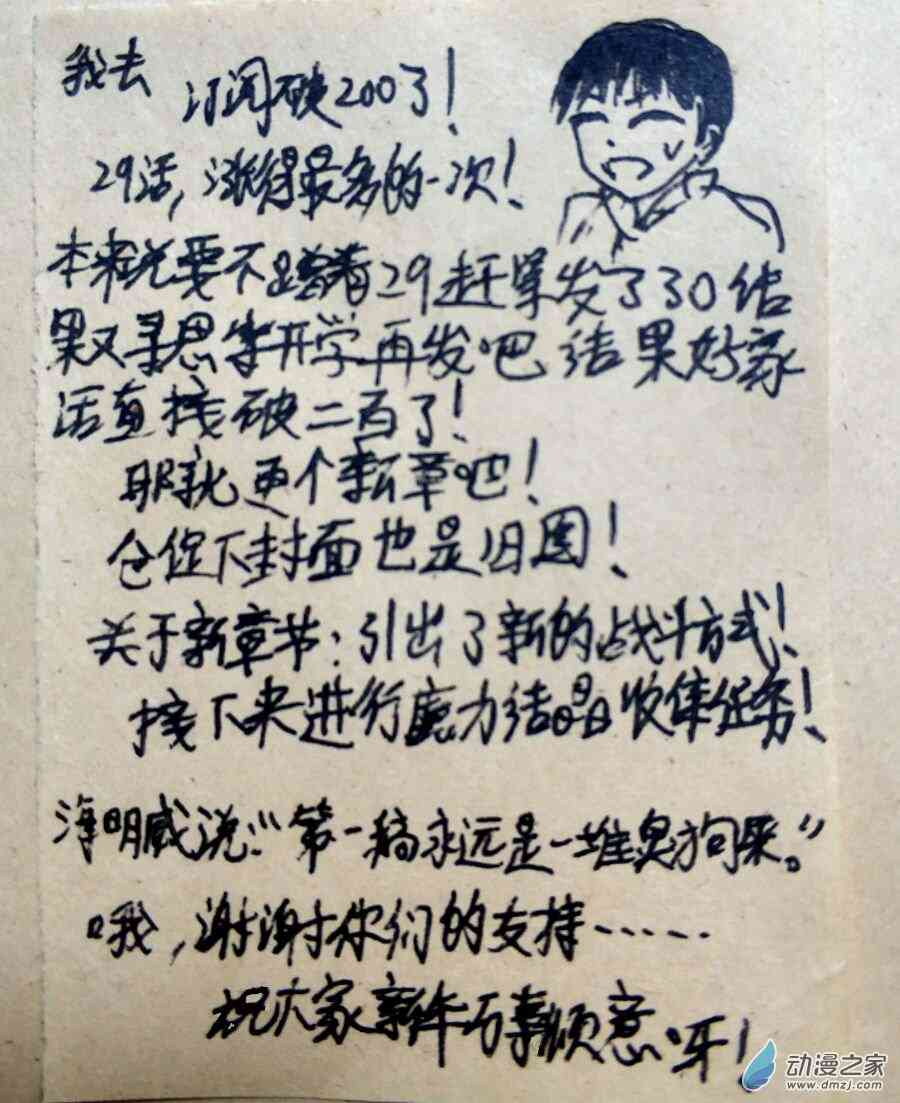 我去
订阅破200了！
29话，涨得最多的一次！
本来说要不趁着29赶紧发了30结
果又寻思等开学再发吧 结果好家
活直接破二百了！
那就更个新章吧！
仓促下封面也是旧图！
关于新章节：引出了新的战斗方式！
接下来进行魔力结晶收集任务！
海明威说：“第一稿永远是一堆臭狗屎。”
哦，谢谢你们的支持……
祝大家新年万事顺意呀！
动漫之家
www.dmzj.com